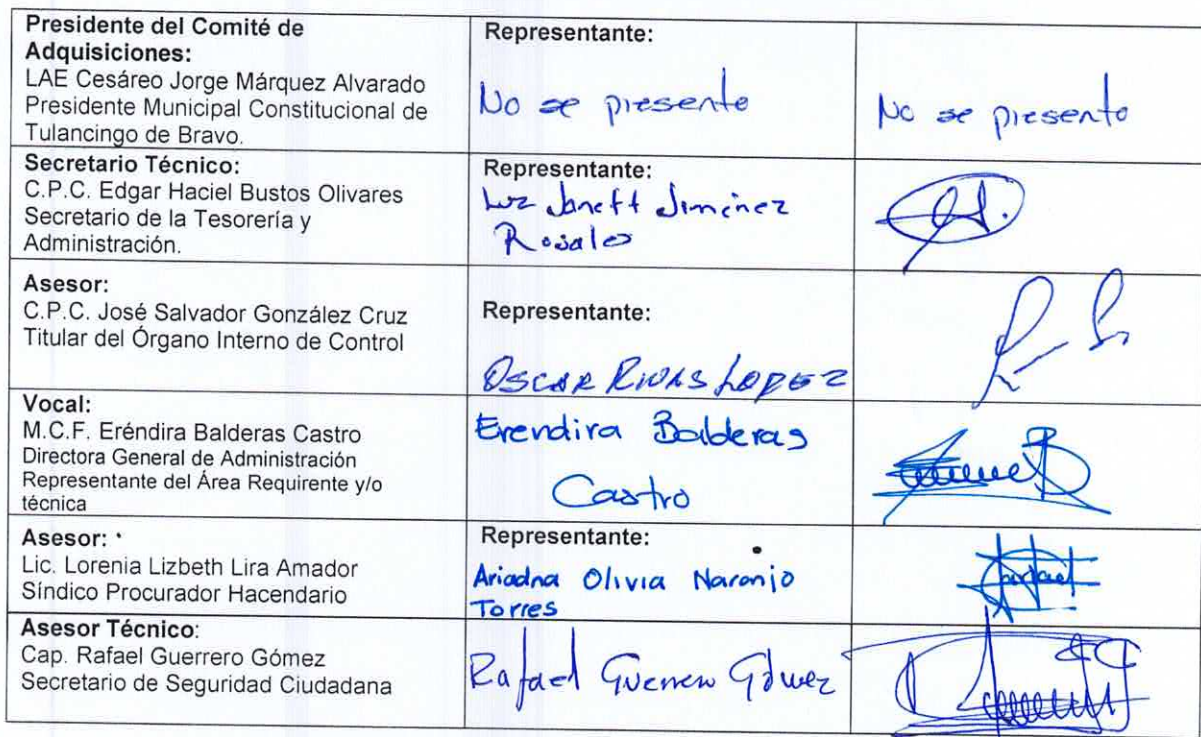 Presidente del Comité de
Adquisiciones:
LAE Cesáreo Jorge Márquez Alvarado
Presidente Municipal Constitucional de
Tulancingo de Bravo.
Representante:
No se presento
No se presento
Secretario Técnico:
C.P.C. Edgar Haciel Bustos Olivares
Secretario de la Tesorería y
Administración.
Representante:
Luz Janett Jimenez
Rosales
Asesor:
C.P.C. José Salvador González Cruz
Titular del Órgano Interno de Control
Representante:
OSCAR RIVAS LOPEZ
Vocal:
M.C.F. Eréndira Balderas Castro
Directora General de Administración
Representante del Área Requirente y/o
técnica
Erendira Balderas
Castro
Asesor:
Lic. Lorenia Lizbeth Lira Amador
Síndico Procurador Hacendario
Representante:
Ariadna Olivia Naranjo
Torres
Asesor Técnico:
Cap. Rafael Guerrero Gómez
Secretario de Seguridad Ciudadana
Rafael Guerrero Gómez